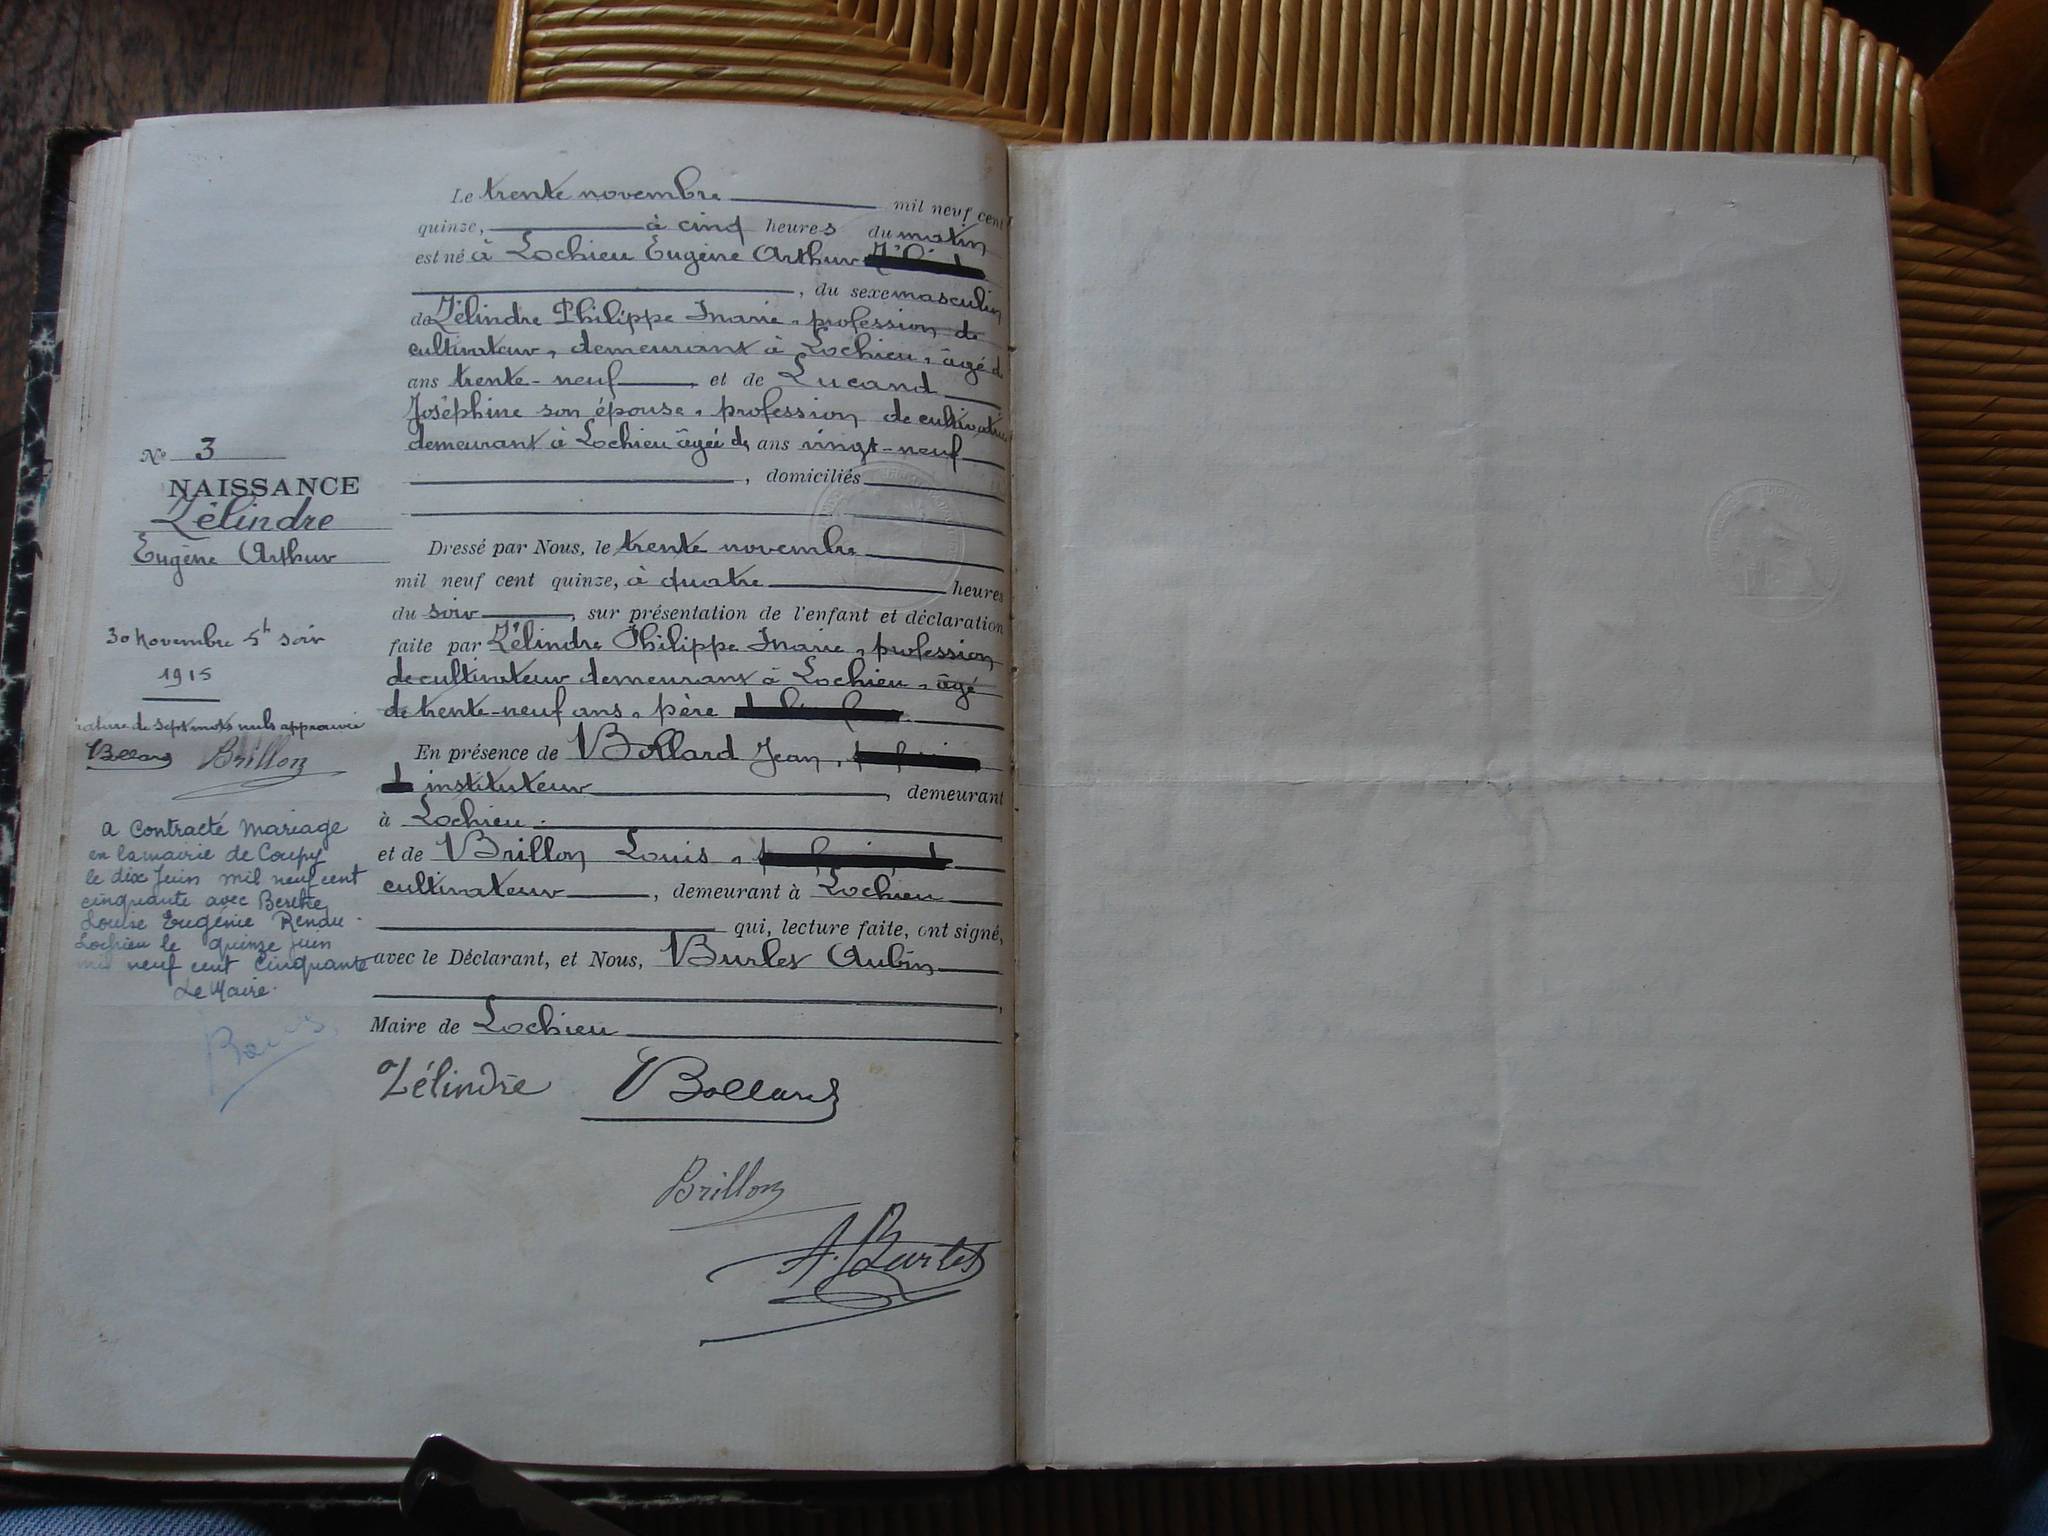 Le trente novembre mil neuf cent
quinze, à cinq heures du matin
est né à Lochieu Eugène Arthur
, du sexe masculin
de Zélindre Philippe Marie, profession de
cultivateur, demeurant à Lochieu, âgé d
ans trente-neuf, et de Lucand
Joséphine son épouse, profession de cultivatrice
demeurant à Lochieu âgée de ans vingt-neuf
, domiciliés
Dressé par Nous, le trente novembre
mil neuf cent quinze, à quatre heures
du soir, sur présentation de l'enfant et déclaration
faite par Zélindre Philippe Marie, profession
de cultivateur demeurant à Lochieu, âgé
de trente-neuf ans, père
En présence de Bollard Jean,
instituteur, demeurant
à Lochieu.
et de Brillon Louis,
cultivateur, demeurant à Lochieu
qui, lecture faite, ont signé,
avec le Déclarant, et Nous, Burlet Aubin
Maire de Lochieu
Zélindre Bollard
Brillon
A. Burlet
No 3
NAISSANCE
Zélindre
Eugène Arthur
30 Novembre 5h soir
1915
rature de sept mots nuls approuvée
Bollard Brillon
a contracté mariage
en la mairie de
le dix Juin mil neuf cent
cinquante avec Berthe
Louise Eugénie Rendu.
Lochieu le quinze juin
mil neuf cent cinquante
Le Maire.